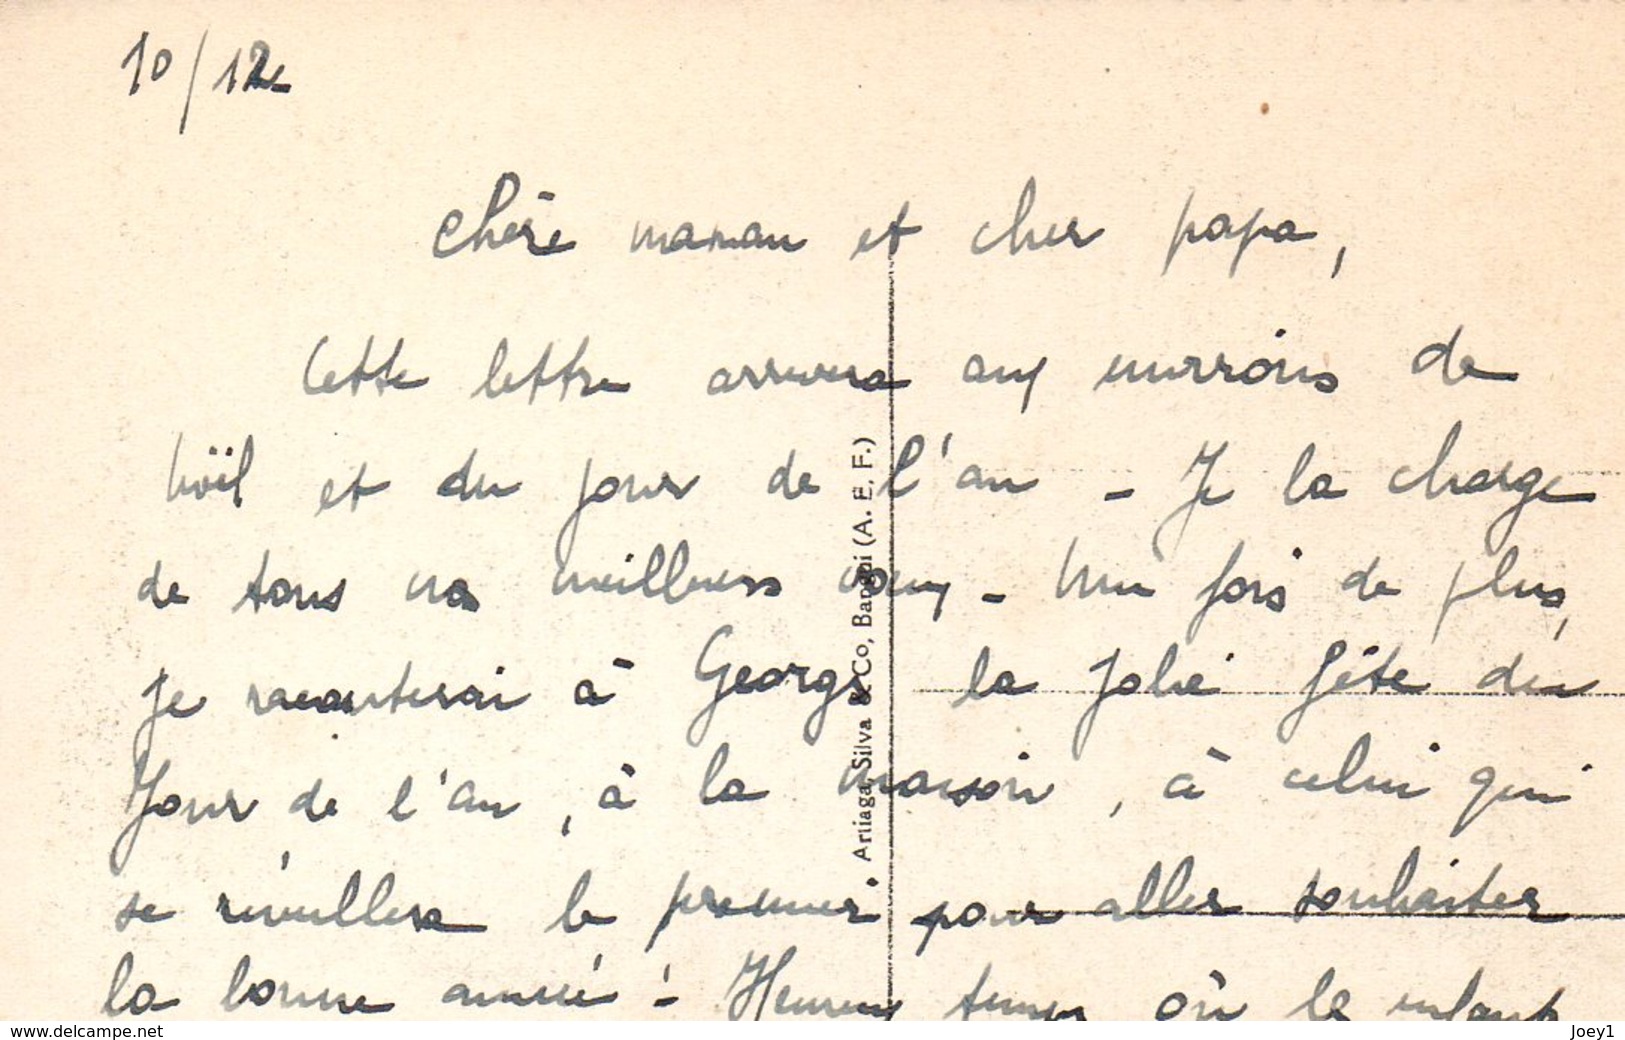 10/12
Chère maman et cher papa,
Cette lettre arrivera aux environs de
Noël et du jour de l'an - Je la charge
de tous nos meilleurs voeux - Une fois de plus,
je raconterai à Georges la jolie fête du
Jour de l'an, à la maison, à celui qui
se réveillera le premier pour aller souhaiter
la bonne année ! Heureux temps où les enfants
Artiaga, Silva & Co, Bangui (A. E. F.)
https://www.delcampe.net
Joey1